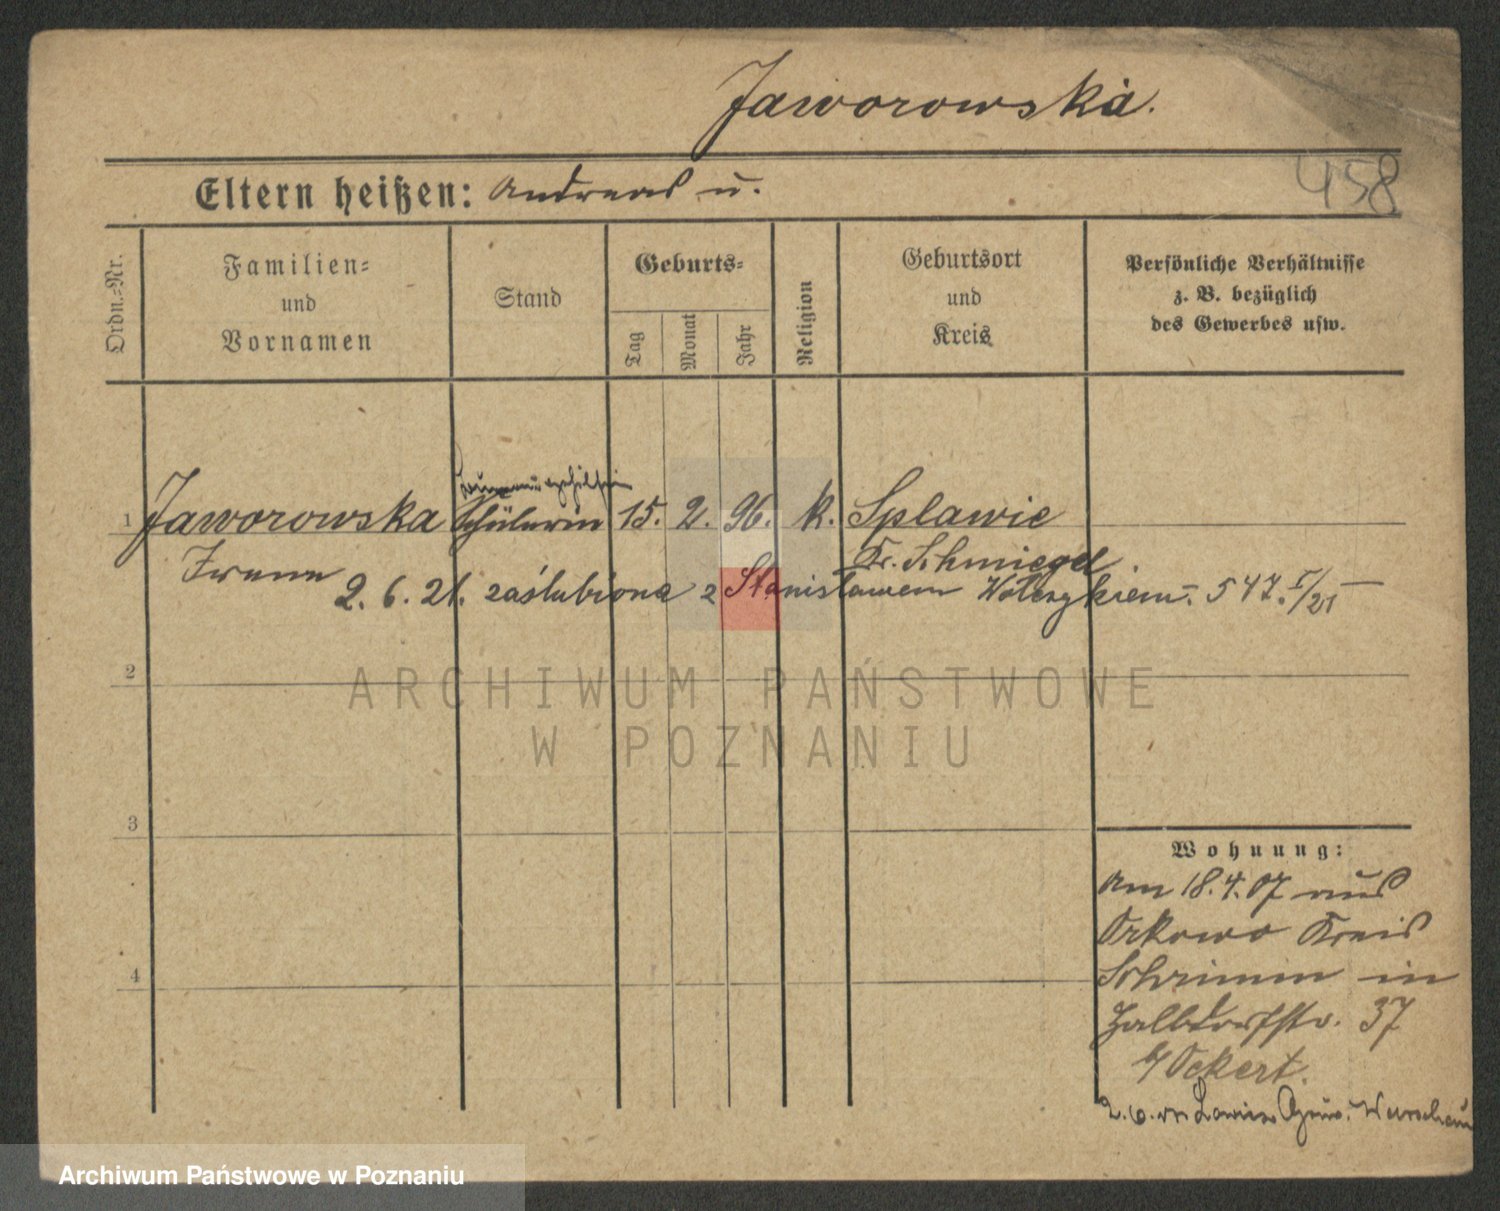 Jaworowska.
458
Eltern heißen: Andreas u.
Ordn.-Nr.
Familien-
und
Vornamen
Stand
Geburts-
Tag
Monat
Jahr
Religion
Geburtsort
und
Kreis
Persönliche Verhältnisse
z. B. bezüglich
des Gewerbes usw.
1 Jaworowska Schülerin 15. 2. 96. k. Splawie
Irene Kr. Schmiegel
2. 6. 21. zaślubiona z Stanisławem 547. I/21
2
ARCHIWUM PAŃSTWOWE
W POZNANIU
3
4
Wohnung:
Am 18.4.07 aus
Orkowo Kreis
Schrimm in
Halbdorfstr. 37
b/Ockert.
Archiwum Państwowe w Poznaniu